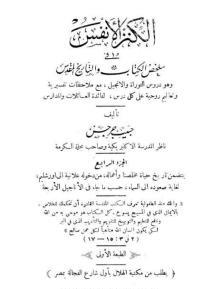 الكنز الأنفس
في
ملخص الكتاب والتاريخ المقدس
وهو دروس التوراة والانجيل، مع ملاحظات تفسيرية
وتعاليم روحية على كل درس، لفائدة العائلات والمدارس
تأليف
حبيب جرجس
ناظر المدرسة الاكليريكية وصاحب مجلة الكرمة
الجزء الرابع
يتضمن تاريخ حياة مخلصنا وأعماله، من دخوله علانية الى اورشليم،
لغاية صعوده الى السماء، حسب ما جاء في الأناجيل الأربعة
( ٢ تي ٣ : ١٥ — ١٧ )
الطبعة الأولى
( يطلب من مكتبة الهلال بأول شارع الفجالة بمصر )